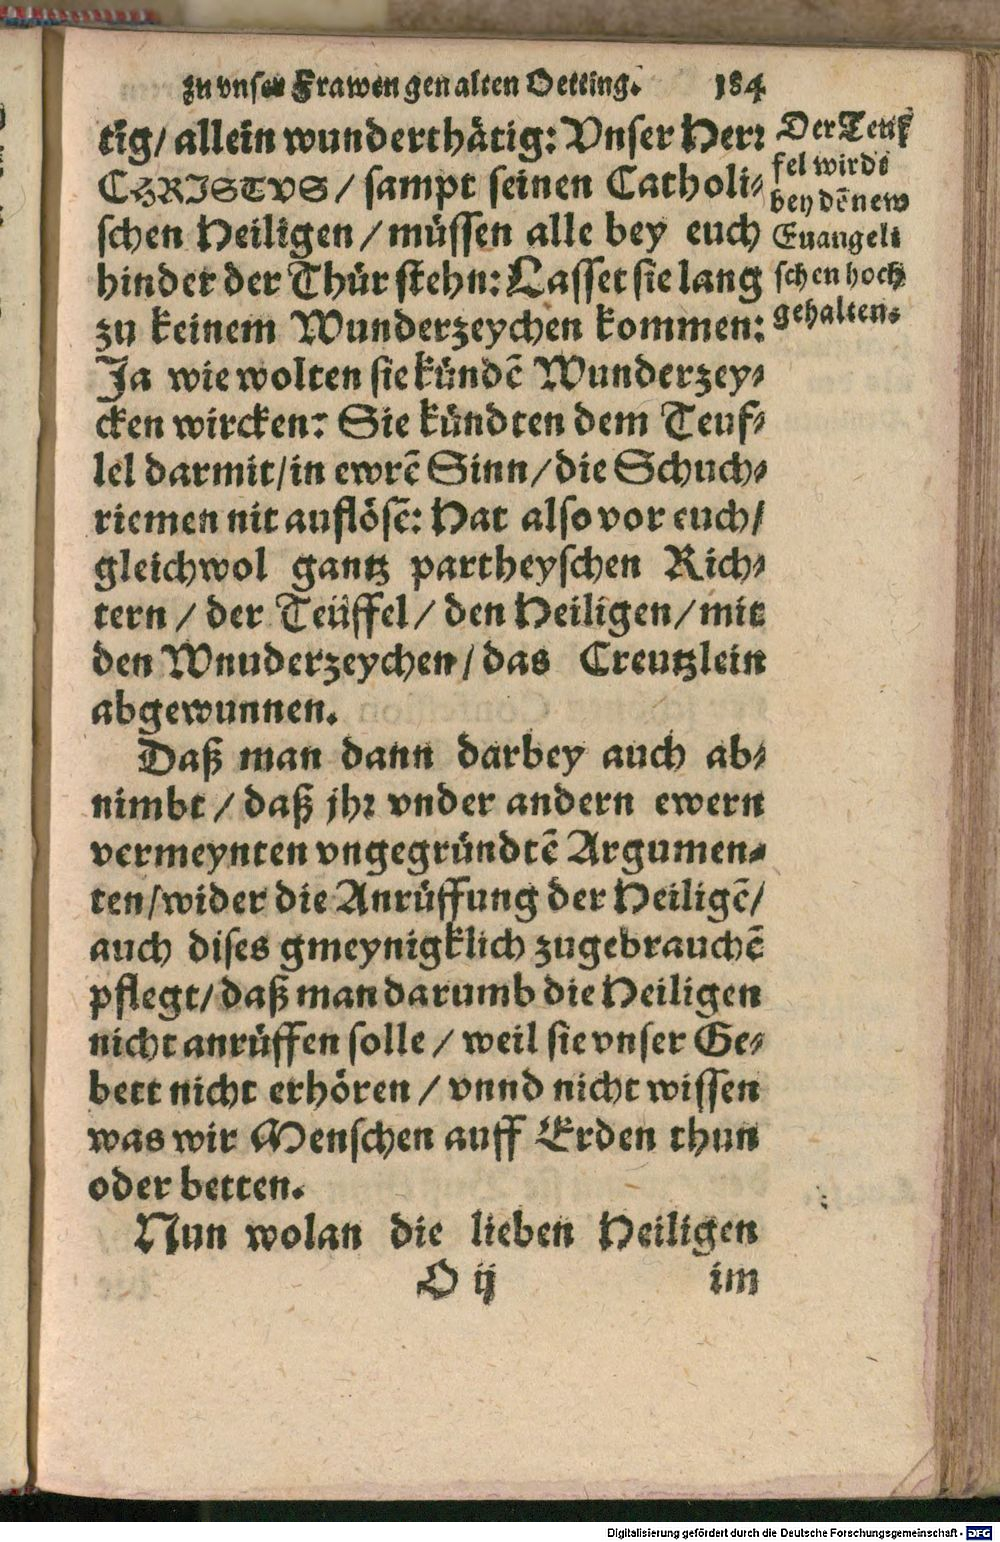 zu vnser Frawen gen alten Oetting. 184
tig/ allein wunderthätig: Vnser Herr
CHRISTVS / sampt seinen Catholi-
schen Heiligen / müssen alle bey euch
hinder der Thür stehn: Lasset sie lang
zu keinem Wunderzeychen kommen:
Ja wie wolten sie kündē Wunderzey-
cken wircken: Sie kündten dem Teuf-
lel darmit/in ewrē Sinn/die Schuch-
riemen nit auflösē: Hat also vor euch/
gleichwol gantz partheyschen Rich-
tern / der Teüffel / den Heiligen / mit
den Wnuderzeychen / das Creutzlein
abgewunnen.
Daß man dann darbey auch ab-
nimbt / daß jhr vnder andern ewern
vermeynten vngegründtē Argumen-
ten/wider die Anrüffung der Heiligē/
auch dises gmeynigklich zugebrauchē
pflegt/ daß man darumb die Heiligen
nicht anrüffen solle / weil sie vnser Ge-
bett nicht erhören / vnnd nicht wissen
was wir Menschen auff Erden thun
oder betten.
Nun wolan die lieben Heiligen
O ij im
Der Teuf
fel wirdt
bey dē new
Euangeli
schen hoch
gehalten.
Digitalisierung gefördert durch die Deutsche Forschungsgemeinschaft - DFG